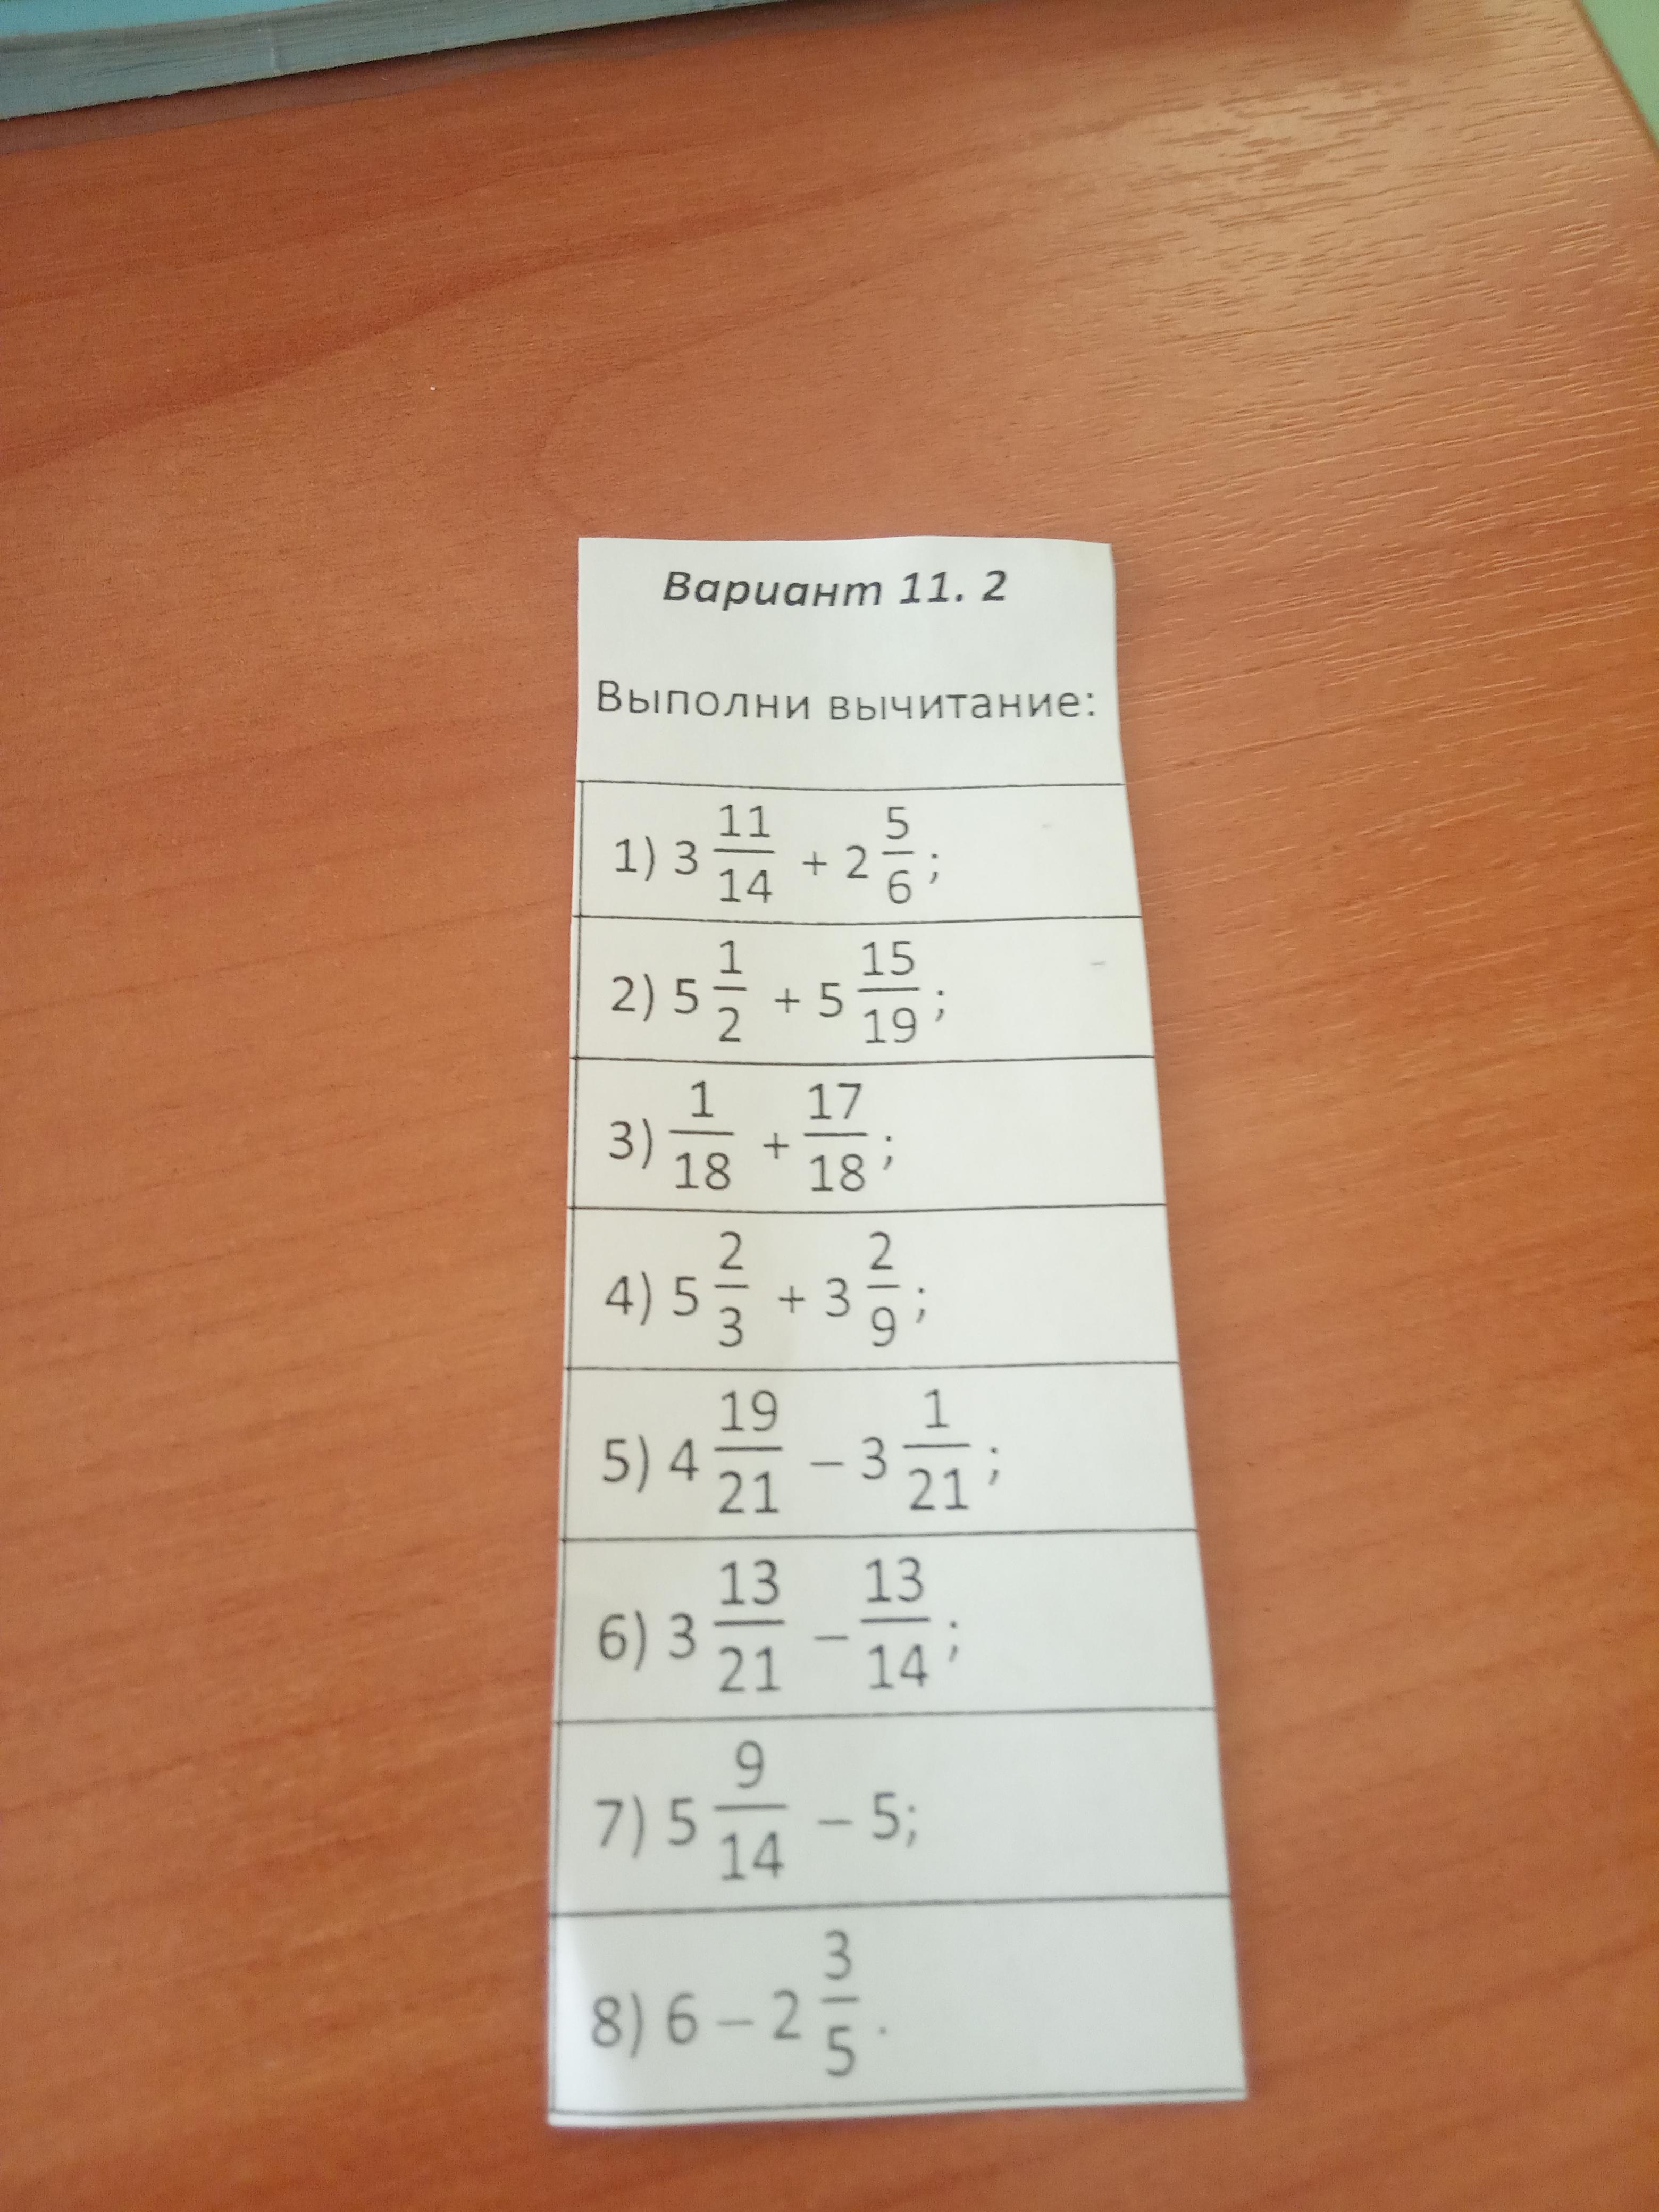 Вариант 11. 2
Выполни вычитание:
1) 3 11/14 + 2 5/6;
2) 5 1/2 + 5 15/19;
3) 1/18 + 17/18;
4) 5 2/3 + 3 2/9;
5) 4 19/21 – 3 1/21;
6) 3 13/21 – 13/14;
7) 5 9/14 – 5;
8) 6 – 2 3/5.